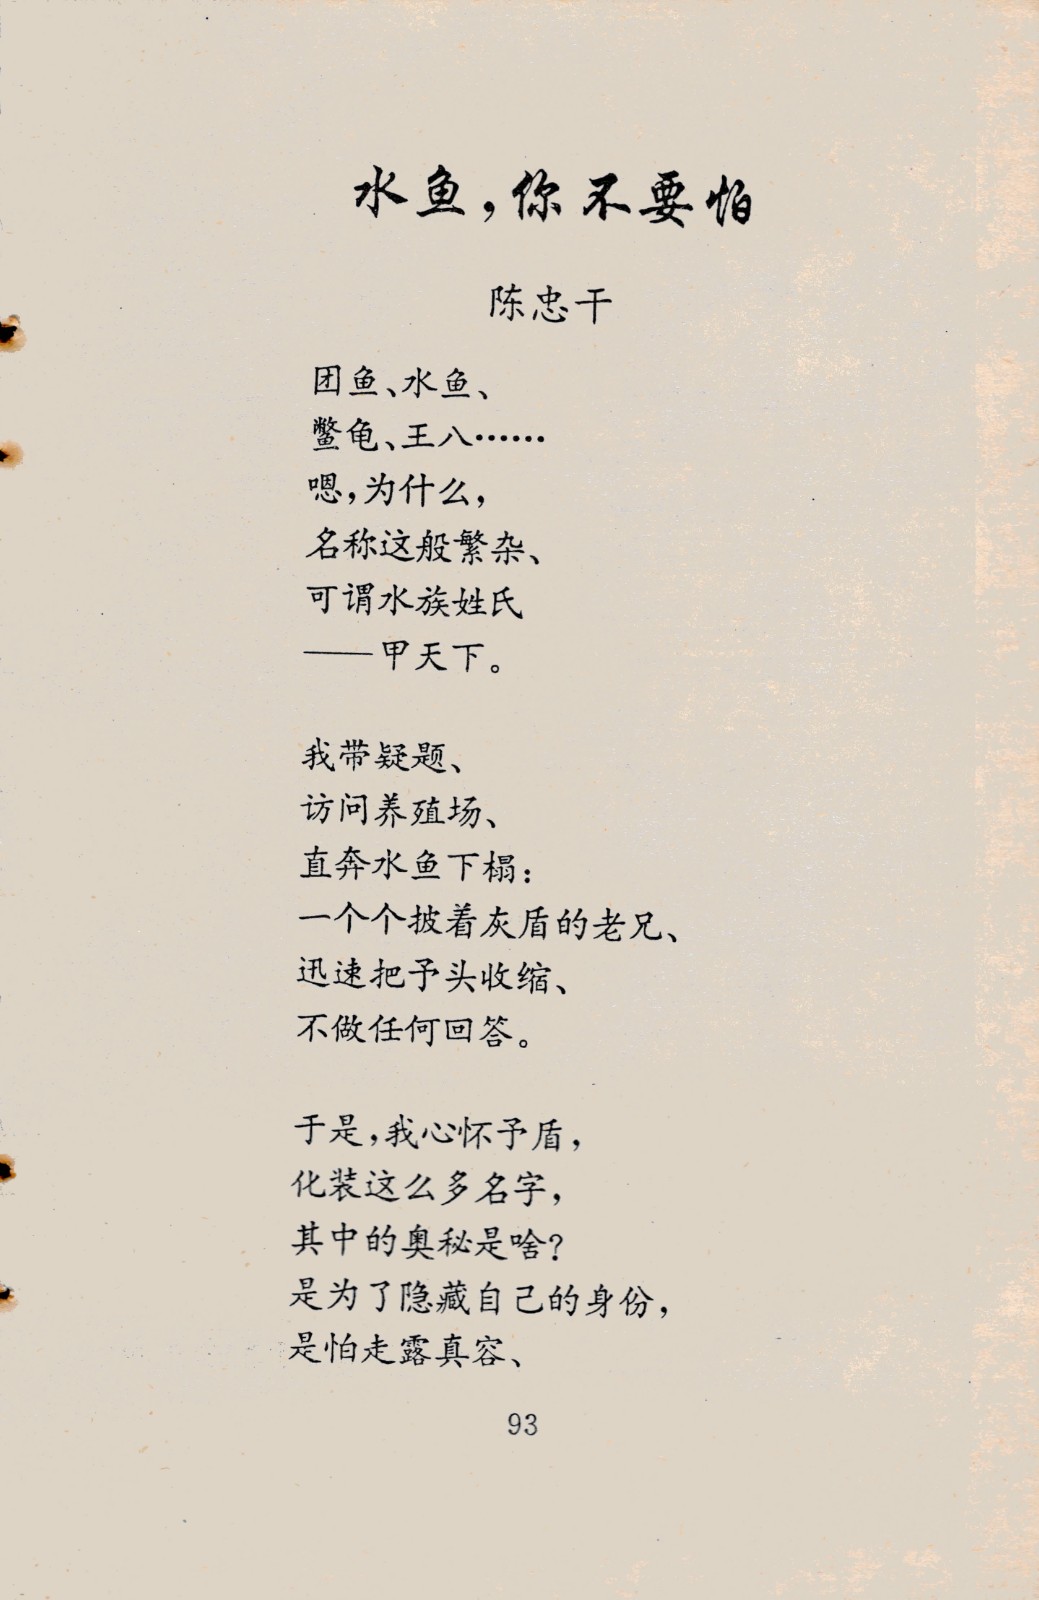 水鱼，你不要怕
陈忠干
团鱼、水鱼、
鳖龟、王八……
嗯，为什么，
名称这般繁杂、
可谓水族姓氏
——甲天下。
我带疑题、
访问养殖场、
直奔水鱼下榻：
一个个披着灰盾的老兄、
迅速把予头收缩、
不做任何回答。
于是，我心怀予盾，
化装这么多名字，
其中的奥秘是啥？
是为了隐藏自己的身份，
是怕走露真容、
93